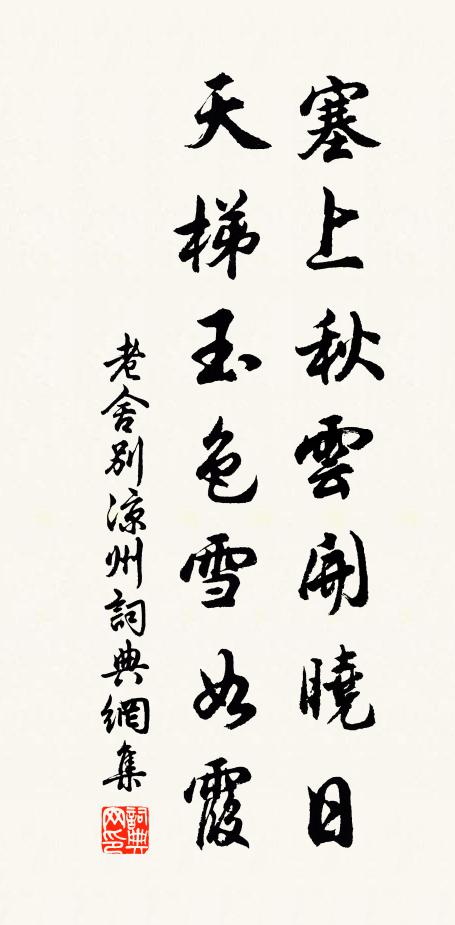 塞上秋雲開曉日
天梯玉色雪如霞
老舍別涼州詞典網集
詞典網印